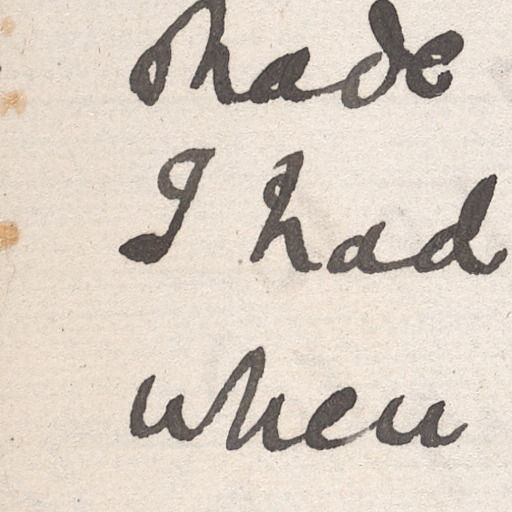 shade
I had
when